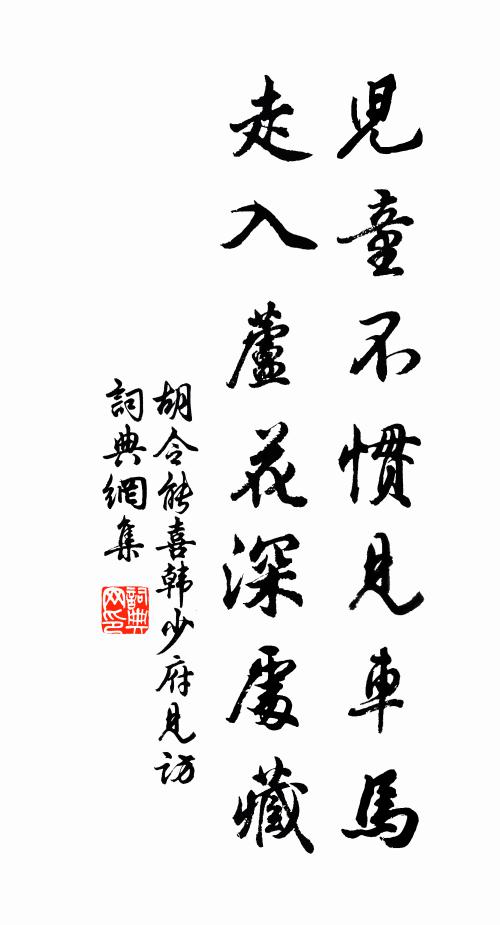 兒童不慣見車馬
走入蘆花深處藏
胡令能喜韩少府見訪
詞典網集
詞典
网印